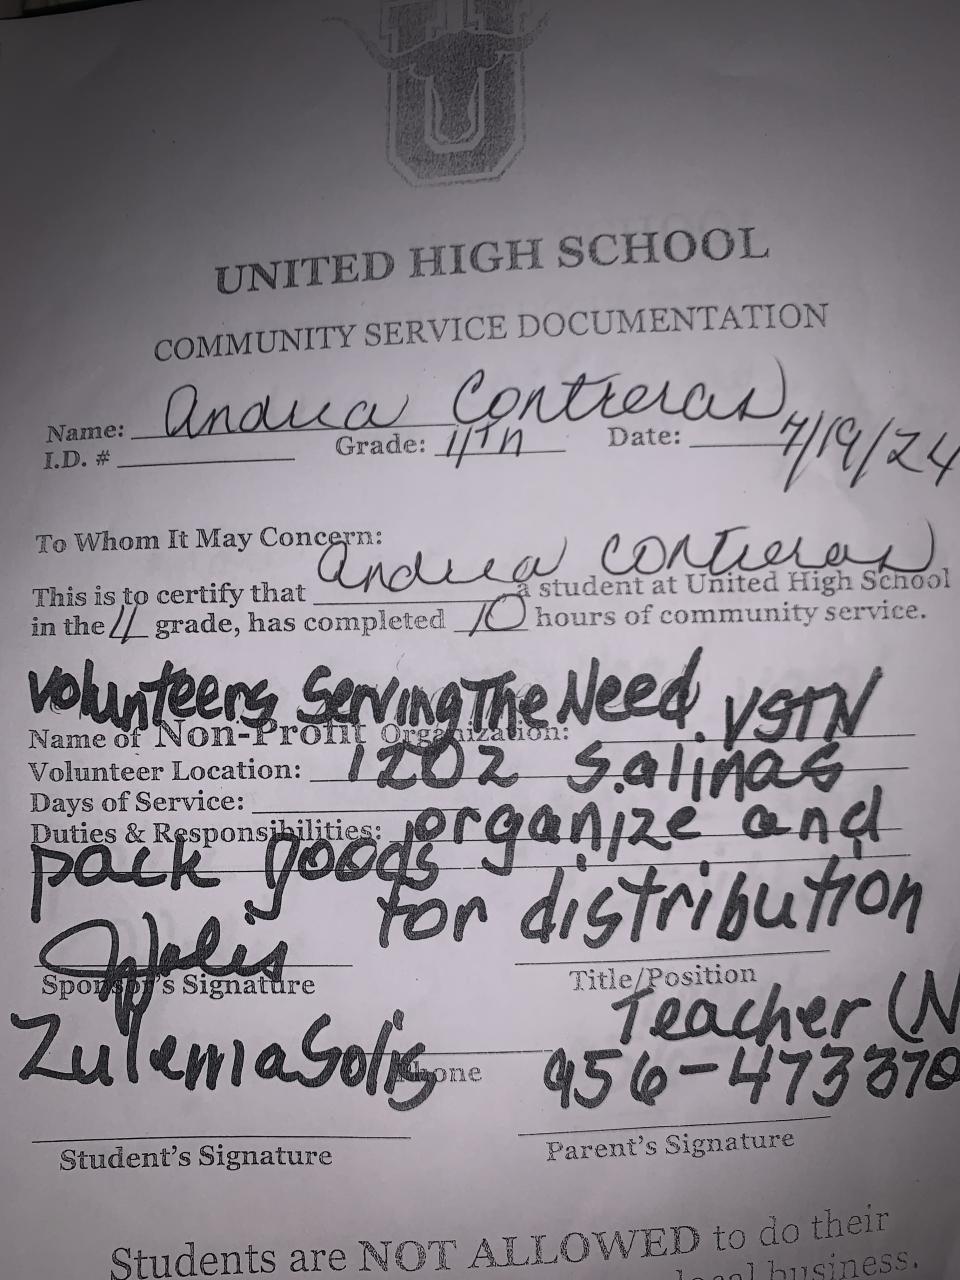 U
UNITED HIGH SCHOOL
COMMUNITY SERVICE DOCUMENTATION
Name: Andrea Contreras
I.D. # Grade: 11Th Date: 7/19/24
To Whom It May Concern:
This is to certify that Andrea Contreras a student at United High School
in the 11 grade, has completed 10 hours of community service.
Volunteers Serving The Need VSTN
Name of Non-Profit Organization:
Volunteer Location: 1202 Salinas
Days of Service:
Duties & Responsibilities: organize and
pack goods
for distribution
Sponsor's Signature Title/Position
Teacher (N
Zulema Solis Phone 956-473
Student's Signature Parent's Signature
Students are NOT ALLOWED to do their
local business.